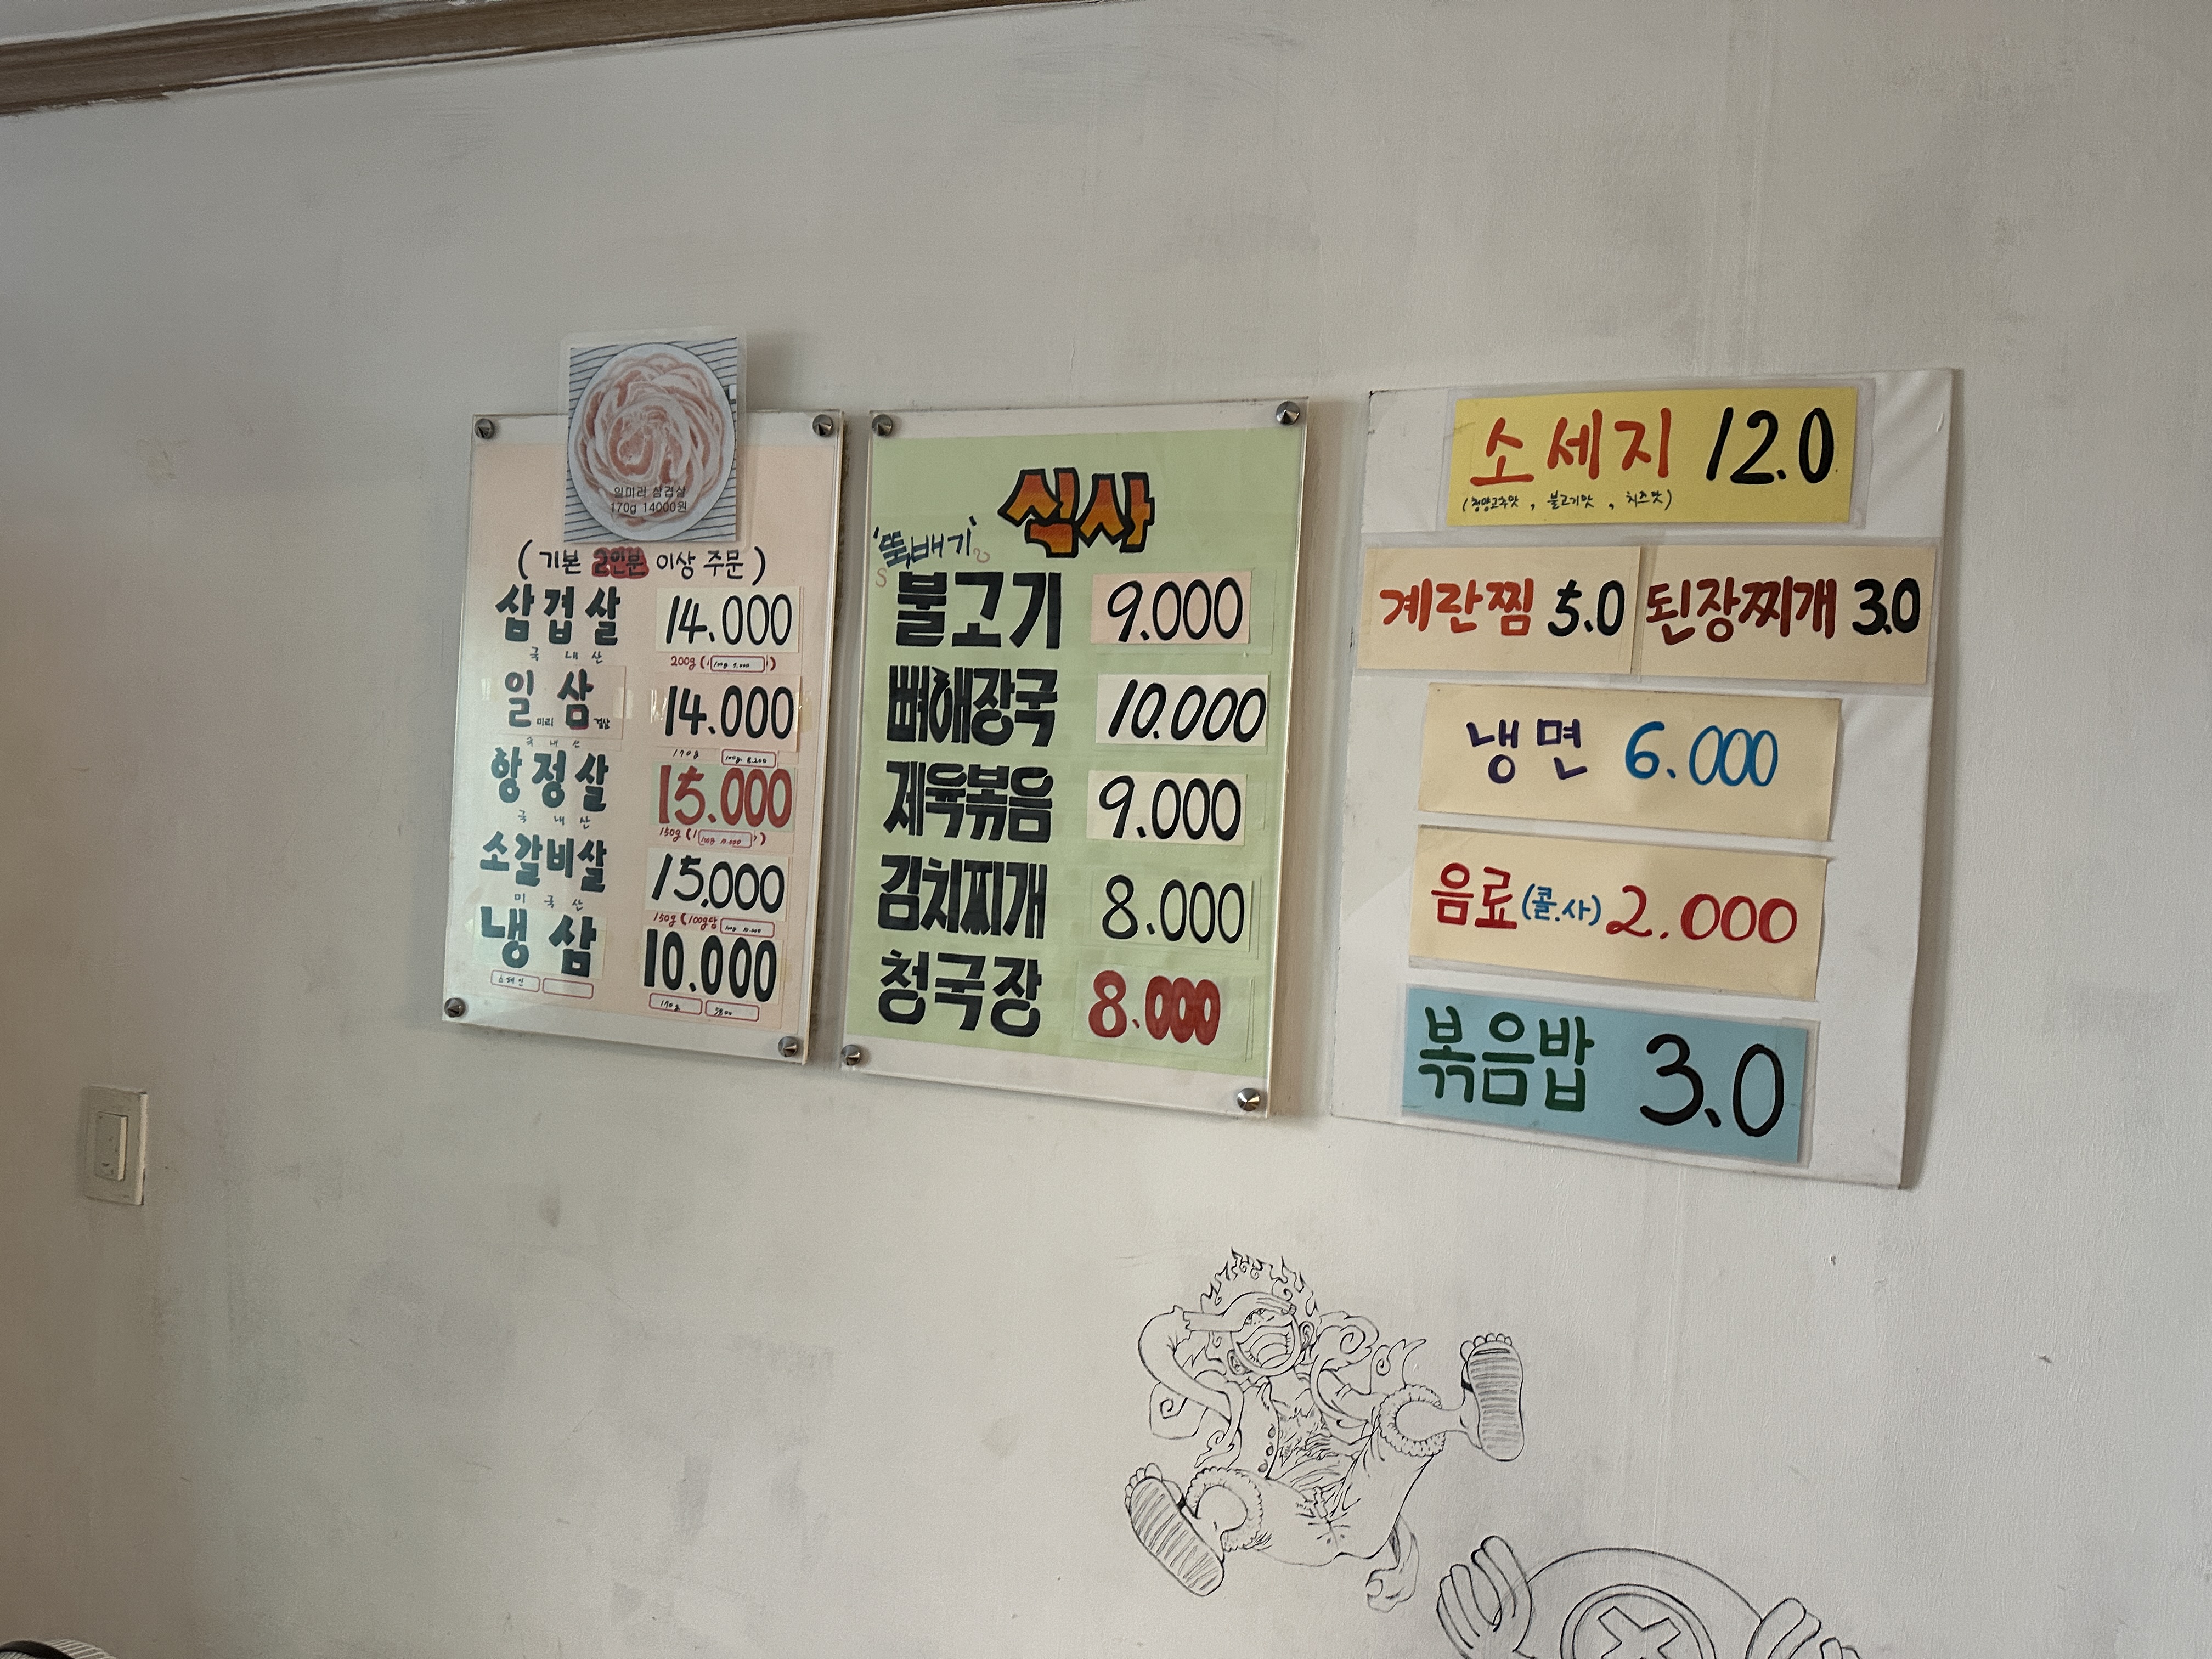 일미리 삼겹살
170g 14000원
( 기본 2인분 이상 주문 )
삼겹살 14.000
국내산 200g
일미리 삼겹살 14.000
국내산 170g 100g 8.200
항정살 15.000
국내산 150g
소갈비살 15.000
미국산 150g (100g당
냉삼 10.000
스페인 170g
식사
'뚝배기'
불고기 9.000
뼈해장국 10.000
제육볶음 9.000
김치찌개 8.000
청국장 8.000
소세지 12.0
(청양고추맛, 불고기맛, 치즈맛)
계란찜 5.0 된장찌개 3.0
냉면 6.000
음료(콜.사) 2.000
볶음밥 3.0